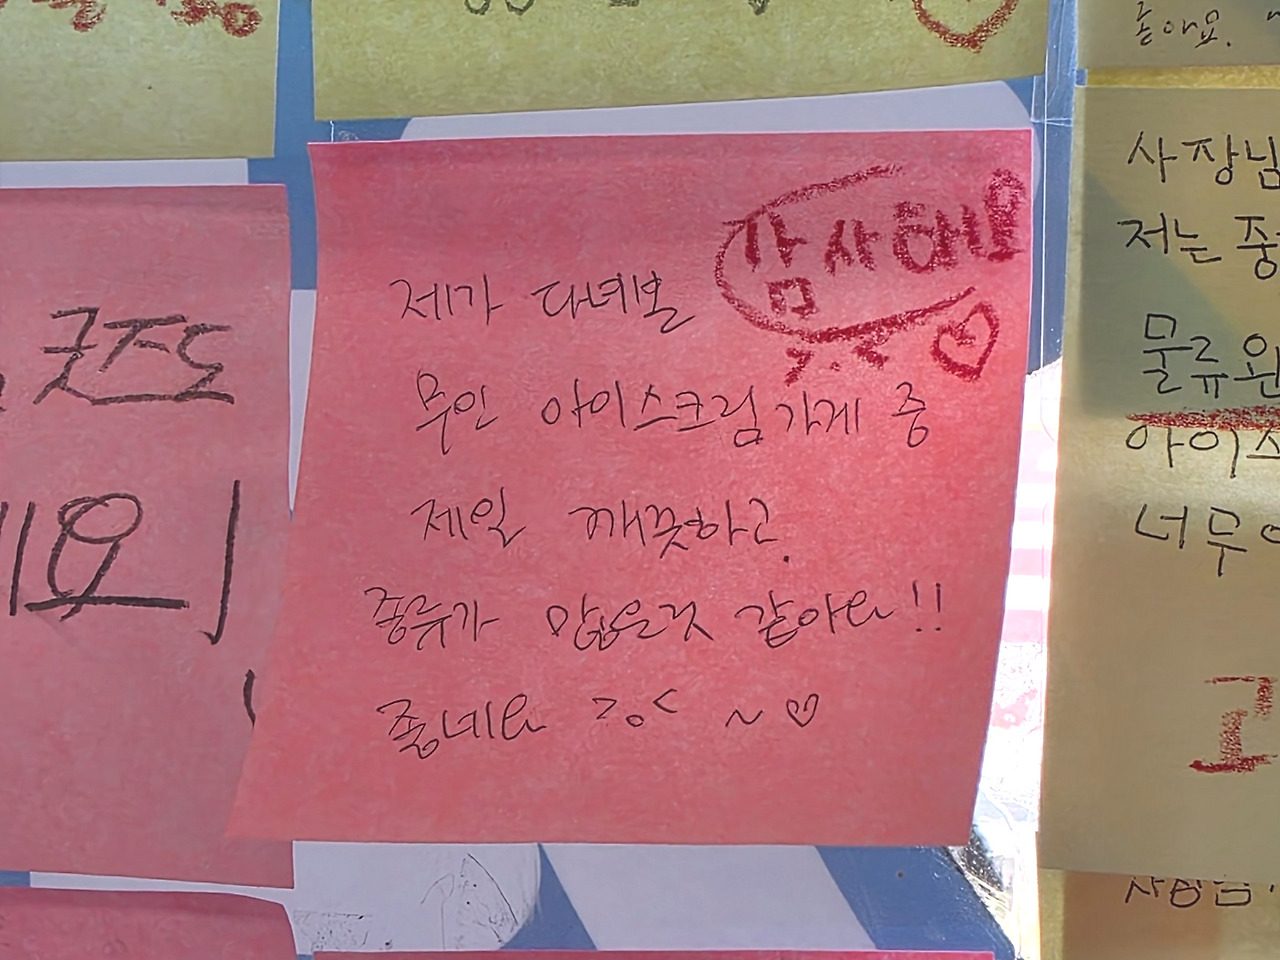 좋아요.
굿즈도
요
감사해요
제가 다녀본
무인 아이스크림가게 중
제일 깨끗하고.
종류가 많은것 같아요!!
좋네요 >o< ~♡
사장님
저는
물류
아이스
너무
고
사장님